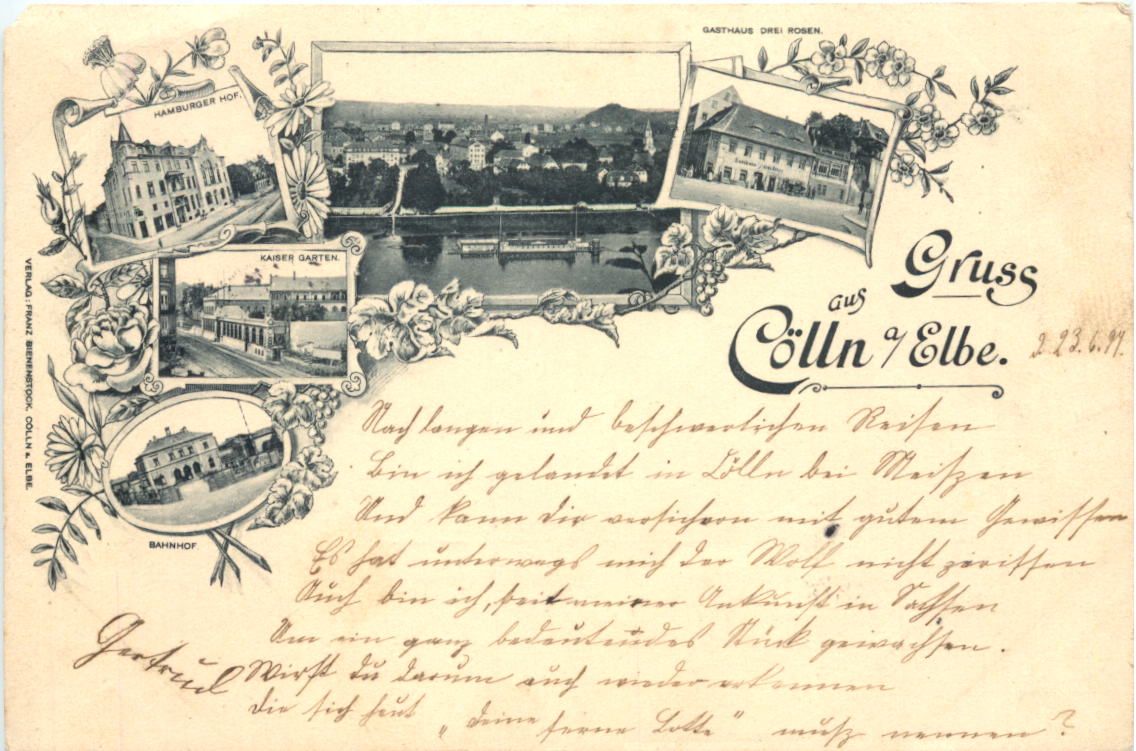 GASTHAUS DREI ROSEN.
HAMBURGER HOF.
KAISER GARTEN.
BAHNHOF
VERLAG: FRANZ BIENENSTOCK, CÖLLN a. ELBE.
Gruss
aus
Cölln a/Elbe.
d. 23.6.97.
Nach langen und beschwerlichen Reisen
Bin ich gelandet in Cölln bei Meiszen
Und kann Dir versichern mit gutem Gewissen
Es hat unterwegs mich der Wolf nicht zerissen
Auch bin ich, seit meiner Ankunft in Sachsen
Um ein ganz bedeutendes Stück gewachsen.
Wirst Du darum auch wieder erkennen
Die sich heut „deine ferne Lotte" musz nennen?
Gertrud